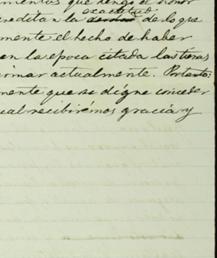 mentos que tengo el honor
exactitud
redita a la de lo que
mente el hecho de haber
en la epoca citada las tomas
irmar actualmente. Portanto,
mente que se digne conceder
ual recibirémos gracia y